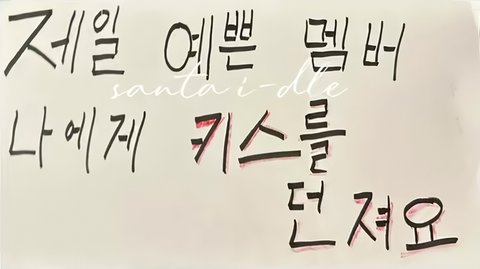 제일 예쁜 멤버
santa i-dle
나에게 키스를
던져요